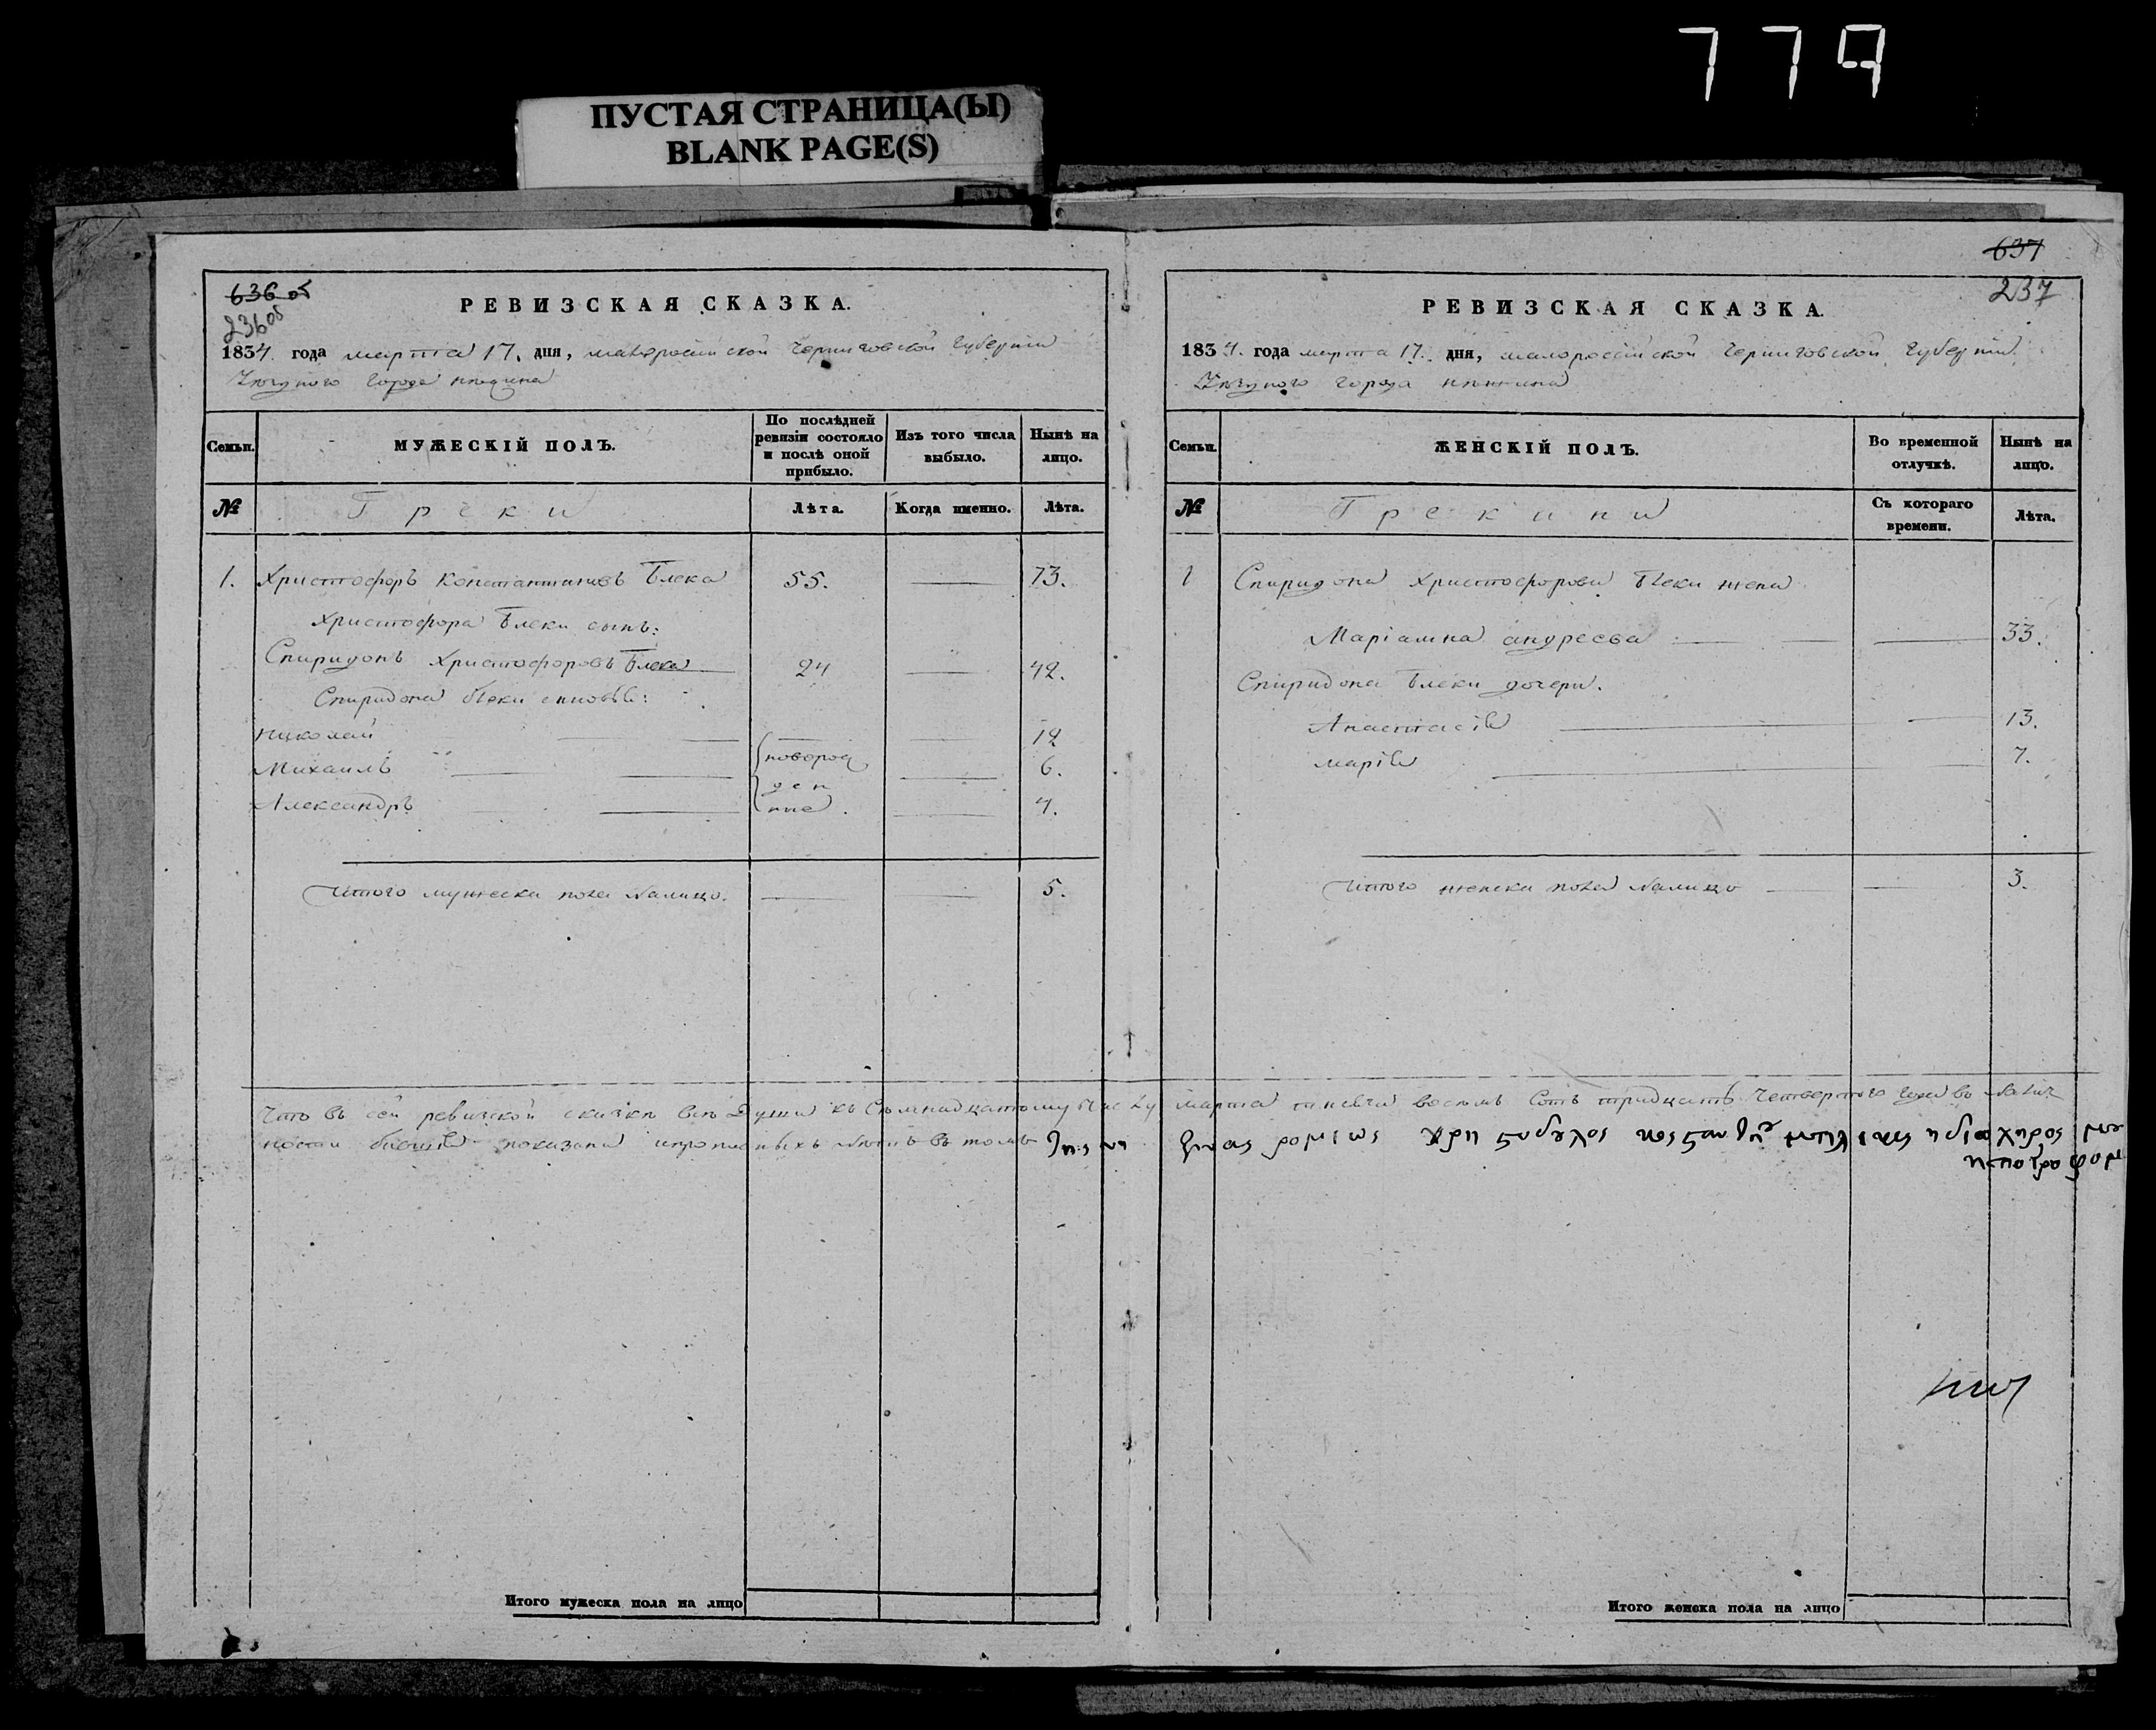 779
ПУСТАЯ СТРАНИЦА(Ы)
BLANK PAGE(S)
636 об
236 об
РЕВИЗСКАЯ СКАЗКА.
1834. года марта 17. дня, малороссійской Черниговской Губерніи
уезднаго города нѣжина
Семьи.
МУЖЕСКІЙ ПОЛЪ.
По послѣдней ревизіи состояло и послѣ оной прибыло.
Изъ того числа выбыло.
Нынѣ на лицо.
№
Греки
Лѣта.
Когда именно.
Лѣта.
1. Христофоръ Константиновъ Блека 55. 73.
Христофора Блеки сынъ:
Спиридонъ Христофоровъ Блека 24 42.
Спиридона Блеки сыновья:
Николай 12
Михаилъ 6.
Александръ 4.
новорож
ден
ные.
Итого мужеска пола налицо. 5.
637
237
РЕВИЗСКАЯ СКАЗКА.
1834. года марта 17. дня, малороссійской Черниговской Губерніи
уезднаго города нѣжина
Семьи.
ЖЕНСКІЙ ПОЛЪ.
Во временной отлучкѣ.
Нынѣ на лицо.
№
Грекини
Съ котораго времени.
Лѣта.
1 Спиридона Христофорова Блеки жена
Маріамна андреева 33.
Спиридона Блеки дочери.
Анастасія 13.
марія 7.
Итого женска пола налицо 3.
Что въ сей ревизской сказкѣ всѣ Души къ Семнадцатому Числу марта тысяча восемь Сотъ тридцать Четвертого Года въ налич
ности бывшія показаны и прописныхъ нѣтъ въ томъ
Итого мужеска пола на лицо
Итого женска пола на лицо